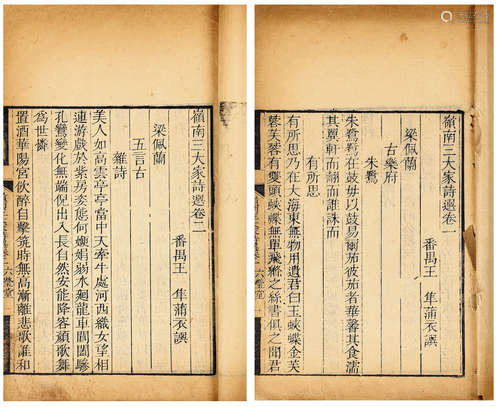 嶺南三大家詩選卷二
番禺王　隼蒲衣譔
梁佩蘭
五言古
雜詩
美人如高雲亭亭當中天牽牛處河西織女望相
連游戲於紫房妾態何嬽娟弱水廻龍車閶闔驂
孔鸞變化無端倪出入長自然安能降容顔歌舞
為世憐
置酒華陽宮飲醉自擊筑時無高漸離悲歌誰和
嶺南三大家詩選卷一
番禺王　隼蒲衣譔
梁佩蘭
古樂府
朱鷺
朱鷺朱鷺在鼓毋以鼓易爾茄彼茄者華蕃其食濡
其翼軒而翻而誰誅而
有所思
有所思乃在大海東無物用遺君曰玉蛺蝶金芙
蓉芙蓉有雙頭蛺蝶無單飛絲之絲書俱之聞君